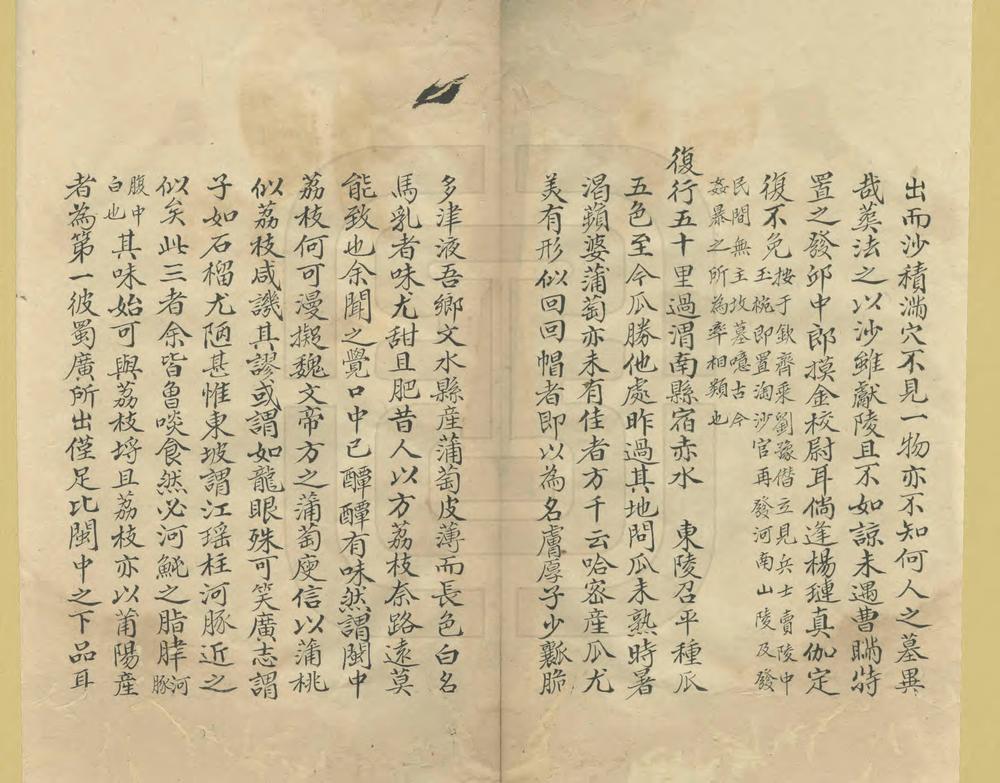 出而沙積満穴不見一物亦不知何人之墓異
哉英法之以沙雖獻陵且不如諒未遇曹瞞特
置之發卯中郎摸金校尉耳倘逢楊璉真伽定
復不免按于欽齊乘劉豫僣立見兵士賣陵中
玉椀即置淘沙官再發河南山陵及發
民間無主坟墓噫古今
姦暴之所為率相類也
復行五十里過渭南縣宿赤水　東陵召平種瓜
五色至今瓜勝他處昨過其地問瓜未熟時暑
渴蘋婆蒲萄亦未有佳者方千云哈宻産瓜尤
美有形似回回帽者即以為名膚厚子少瓤脆
多津液吾鄉文水縣産蒲萄皮薄而長色白名
馬乳者味尤甜且肥昔人以方荔枝奈路遠莫
能致也余聞之覺口中已醰醰有味然謂閩中
荔枝何可漫擬魏文帝方之蒲萄庾信以蒲桃
似荔枝咸譏其謬或謂如龍眼殊可笑廣志謂
子如石榴尤陋甚惟東坡謂江瑶柱河豚近之
似矣此三者余皆魯啖食然必河魨之脂脺河豚
腹中白也其味始可與荔枝埒且荔枝亦以莆陽産
者為第一彼蜀廣所出僅足比閩中之下品耳